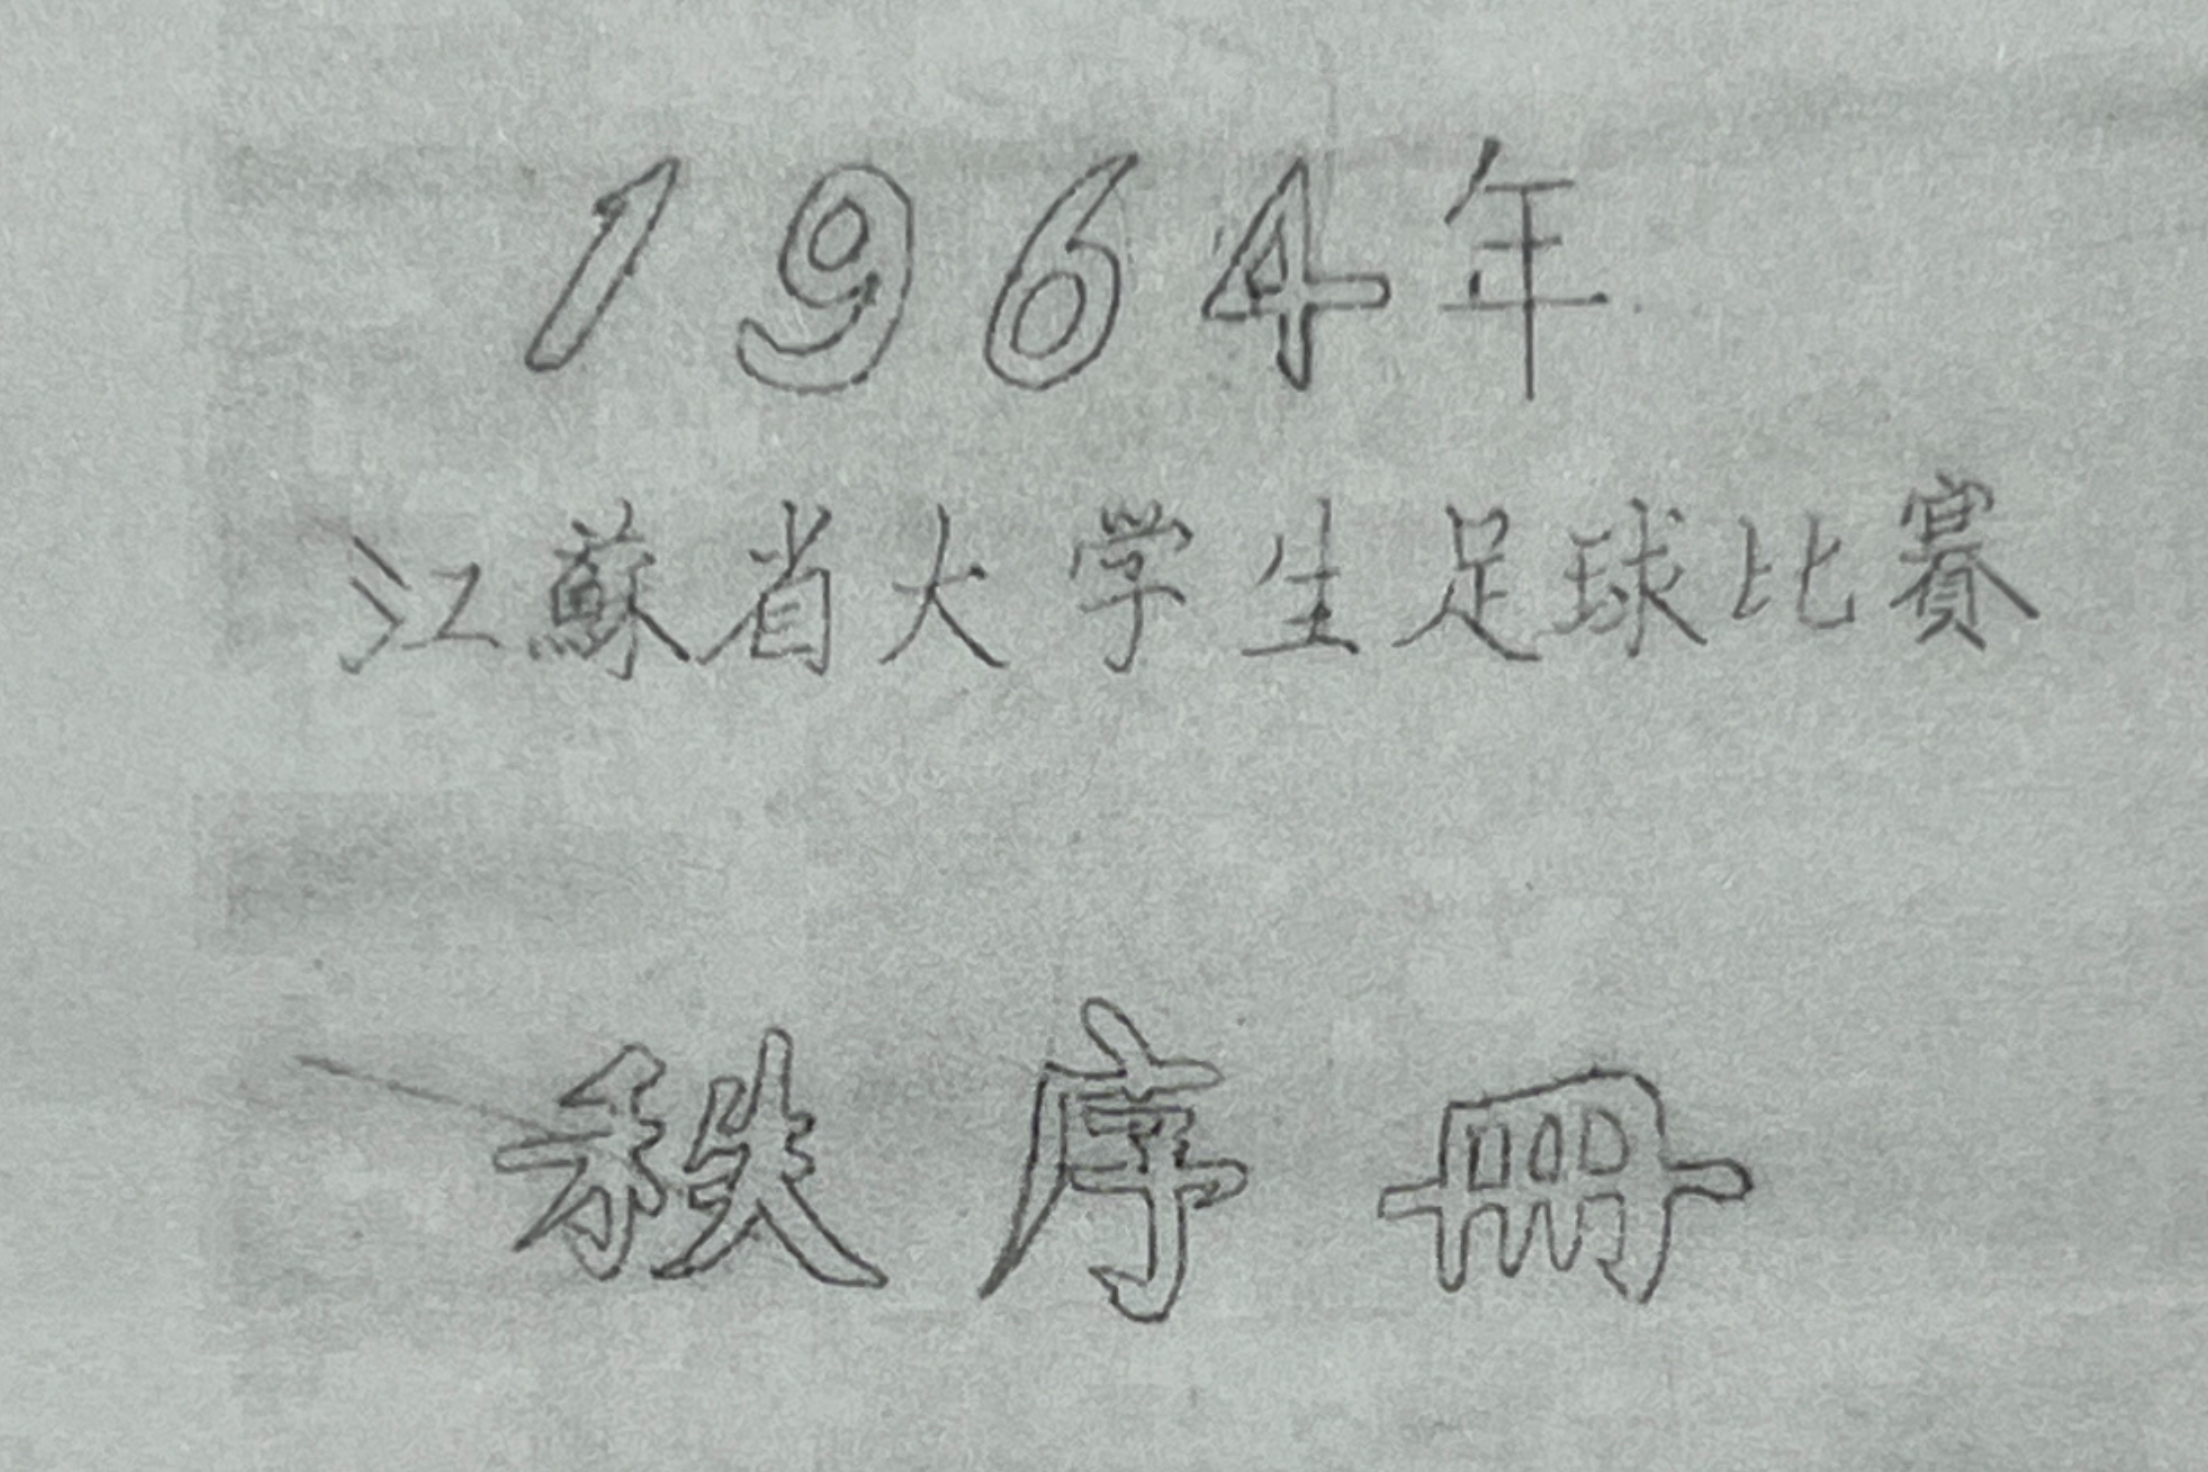 1964年
江蘇省大学生足球比賽
秩序冊